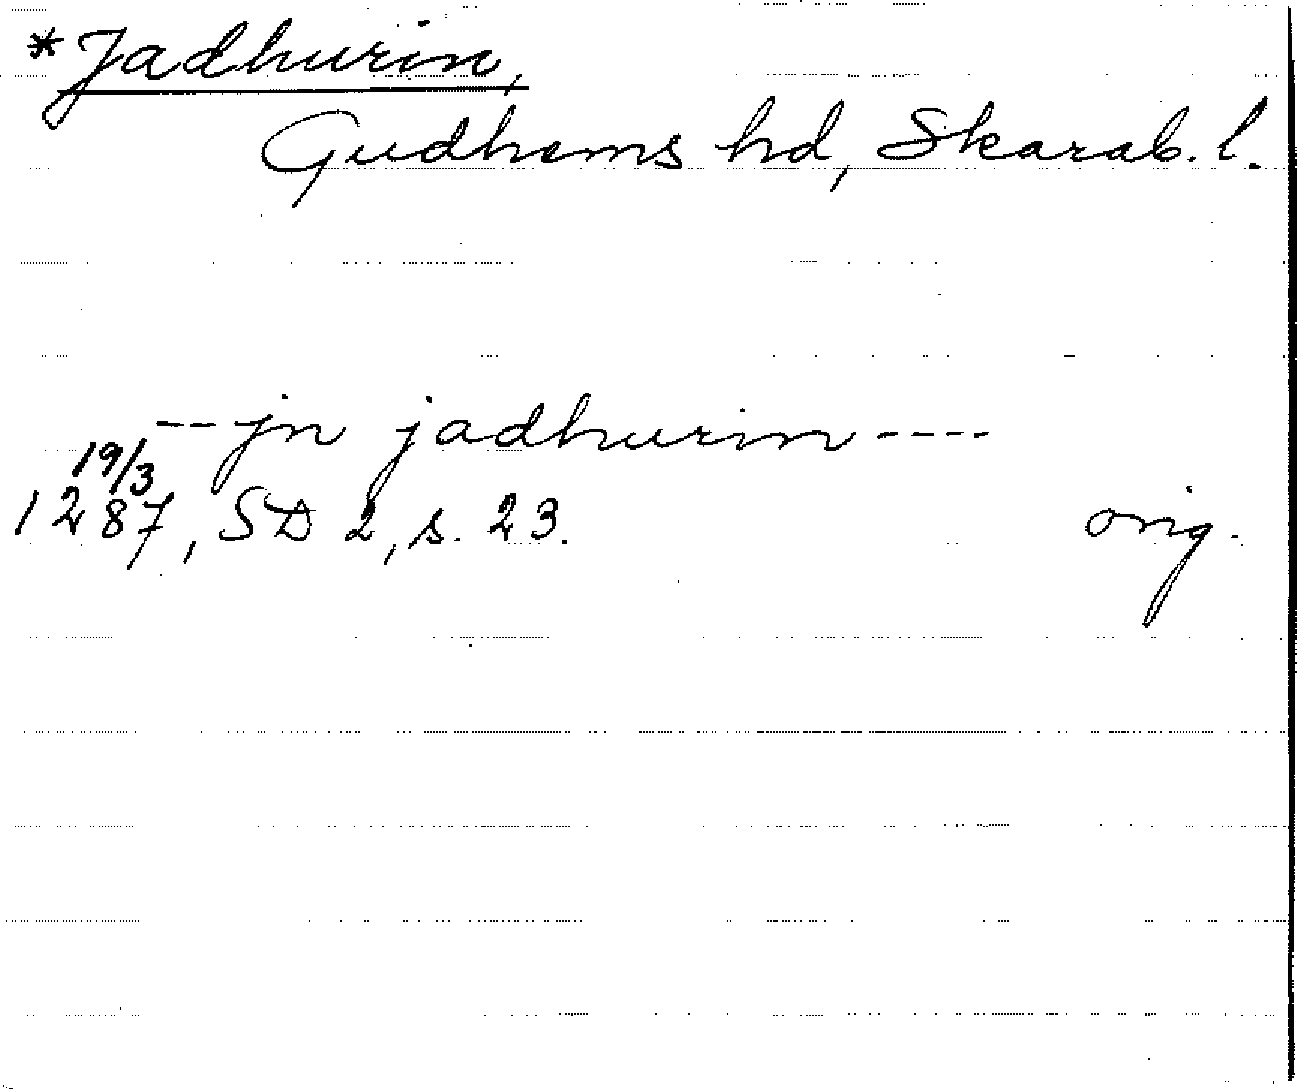 *Jadhurin,
Gudhems hd, Skarab. l.
-- jn jadhurin ----
19/3
1287, SD 2, s. 23. orig.